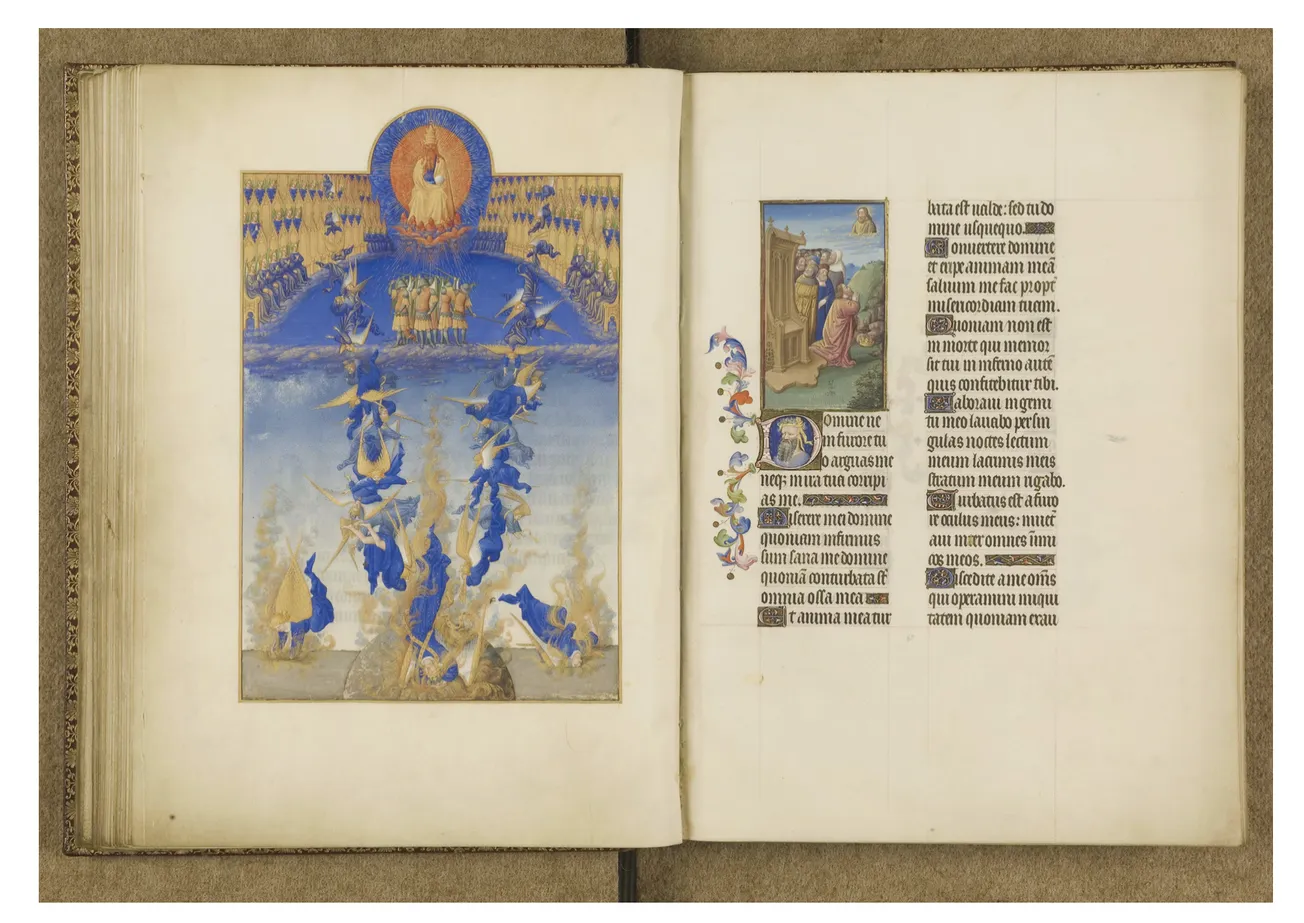 Domine ne
in furore tu
o arguas me
neq; in ira tua corripi
as me.
Miserere mei domine
quoniam infirmus
sum sana me domine
quoniā conturbata sūt
omnia ossa mea
Et anima mea tur
bata est ualde: sed tu do
mine usquequo.
Conuertere domine
et eripe animam meā
saluum me fac propt̄
misericordiam tuam.
Quoniam non est
in morte qui memor
sit tui in inferno autē
quis confitebitur tibi.
Laboraui in gemi
tu meo lauabo per sin
gulas noctes lectum
meum lacrimis meis
stratum meum rigabo.
Turbatus est a furo
re oculus meus: inuet̄
aui inter omnes īimi
cos meos.
Discedite a me om̄s
qui operamini iniqui
tatem quoniam exau